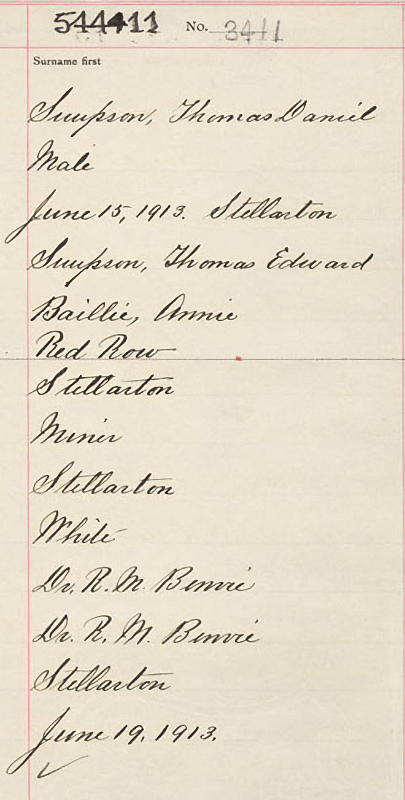 544411 No. 3411
Surname first
Simpson, Thomas Daniel
Male
June 15, 1913. Stellarton
Simpson, Thomas Edward
Baillie, Annie
Red Row
Stellarton
Miner
Stellarton
White
Dr. R. M. Benvie
Dr. R. M. Benvie
Stellarton
June 19, 1913.
✓